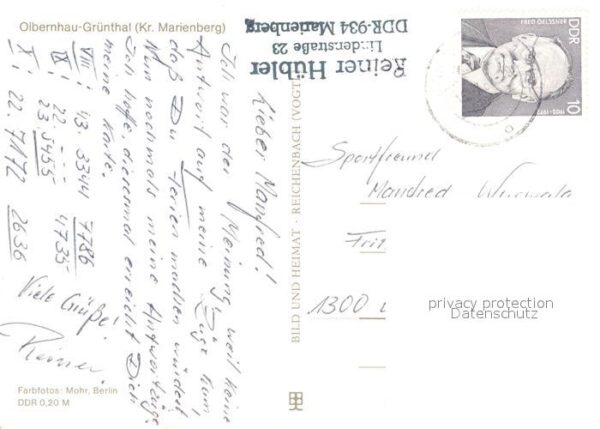 Olbernhau-Grünthal (Kr. Marienberg)
Lieber Manfred!
Ich war der Meinung, weil keine
Antwort auf meine Züge kam,
daß Du Ferien machen würdest.
Nun nochmals meine Antwortzüge.
Ich hoffe, diesesmal erreicht Dich
meine Karte.
VIII: 43. 3344 7786
IX: 22. --- 4735
23. 5455
X: 22. 7172 2636
Viele Grüße!
Reiner
Farbfotos: Mohr, Berlin
DDR 0,20 M
BILD UND HEIMAT · REICHENBACH (VOGT
Reiner Hübler
Lindenstraße 23
DDR-934 Marienberg
DDR
10
Sportfreund
Manfred
Frit
1300
privacy protection
Datenschutz